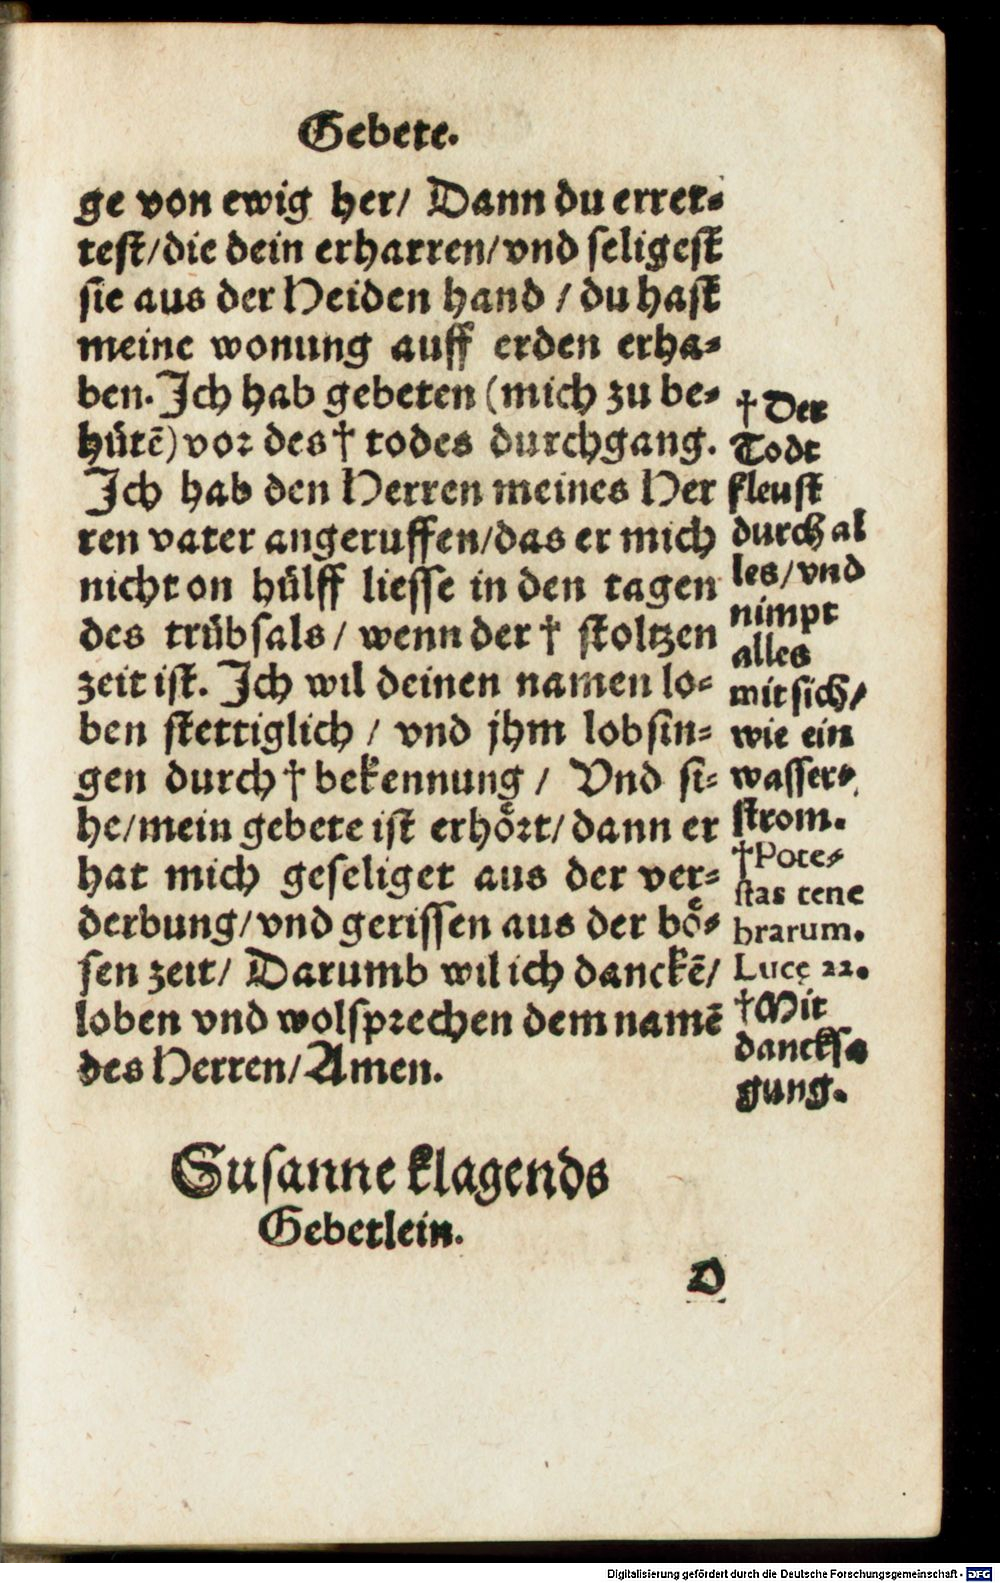 Gebete.
ge von ewig her/ Dann du erret⸗
test/die dein erharren/vnd seligest
sie aus der Heiden hand / du hast
meine wonung auff erden erha⸗
ben. Ich hab gebeten (mich zu be⸗
hütē) vor des † todes durchgang.
Ich hab den Herren meines Her
ren vater angeruffen/das er mich
nicht on hülff liesse in den tagen
des trübsals/ wenn der † stoltzen
zeit ist. Ich wil deinen namen lo⸗
ben stettiglich / vnd jhm lobsin⸗
gen durch † bekennung / Vnd si⸗
he/mein gebete ist erhört/ dann er
hat mich geseliget aus der ver⸗
derbung/vnd gerissen aus der bö⸗
sen zeit/ Darumb wil ich danckē/
loben vnd wolsprechen dem namē
des Herren/Amen.
† Der
Todt
fleust
durch al
les/vnd
nimpt
alles
mit sich/
wie ein
wasser⸗
strom.
†Pote⸗
stas tene
brarum.
Lucę 22.
†Mit
dancksa
gung.
Susanne klagends
Gebetlein.
D
Digitalisierung gefördert durch die Deutsche Forschungsgemeinschaft - DFG